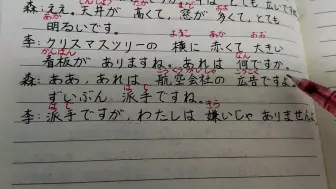 森：ええ。天井が 高くて、窓が 多くて、とても
明るいです。
李：クリスマスツリーの 横に 赤くて 大きい
看板が ありますね。あれは 何ですか。
森：ああ、あれは 航空会社の 広告ですよ。
ずいぶん 派手ですね。
李：派手ですが、わたしは 嫌いじゃ ありません